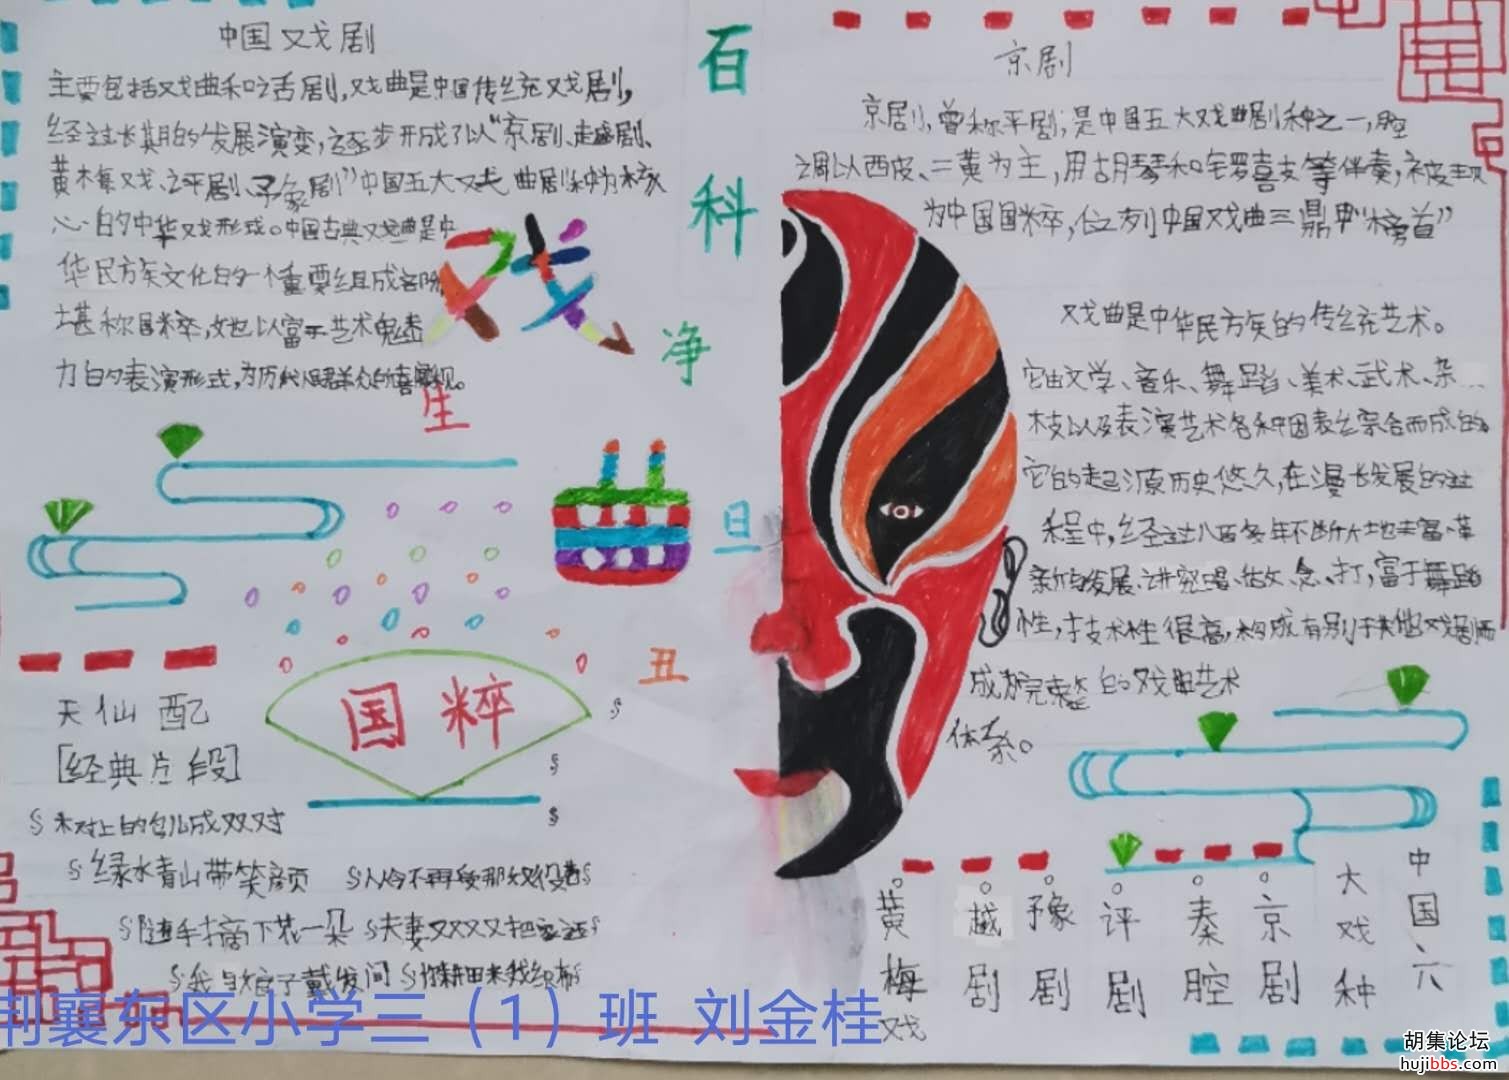 中国戏剧
主要包括戏曲和话剧,戏曲是中国传统戏剧,
经过长期的发展演变,逐步开成了以“京剧、越剧、
黄梅戏、评剧、豫剧”中国五大戏曲剧种为核
心的中华戏形式。中国古典戏曲是中
华民族文化的一个重要组成部分
堪称国粹,她也以富于艺术魅
力的表演形式,为历代人民群众的喜
戏
百科
生
净
旦
丑
国粹
京剧
京剧,曾称平剧,是中国五大戏曲剧种之一,腔
调以西皮、二黄为主,用胡琴和锣鼓等伴奏,被视
为中国国粹,位列中国戏曲三鼎甲“榜首”
戏曲是中华民族的传统艺术。
它由文学、音乐、舞蹈、美术、武术、杂
技以及表演艺术各种因素综合而成的
它的起源历史悠久,在漫长发展的过
程中,经过八百多年不断地丰富、革
新与发展,讲究唱、做、念、打,富于舞蹈
性,技术性很高,构成有别于其他戏剧而
成为完整的戏曲艺术
体系。
天仙配
[经典片段]
树上的鸟儿成双对
绿水青山带笑颜
随手摘下花一朵
我与娘子戴发间
从今不再受那奴役苦
夫妻双双把家还
你耕田来我织布
中国六
大戏种
京剧
秦腔
评剧
豫剧
越剧
黄梅戏
荆襄东区小学三（1）班 刘金桂
胡集论坛
hujibbs.com